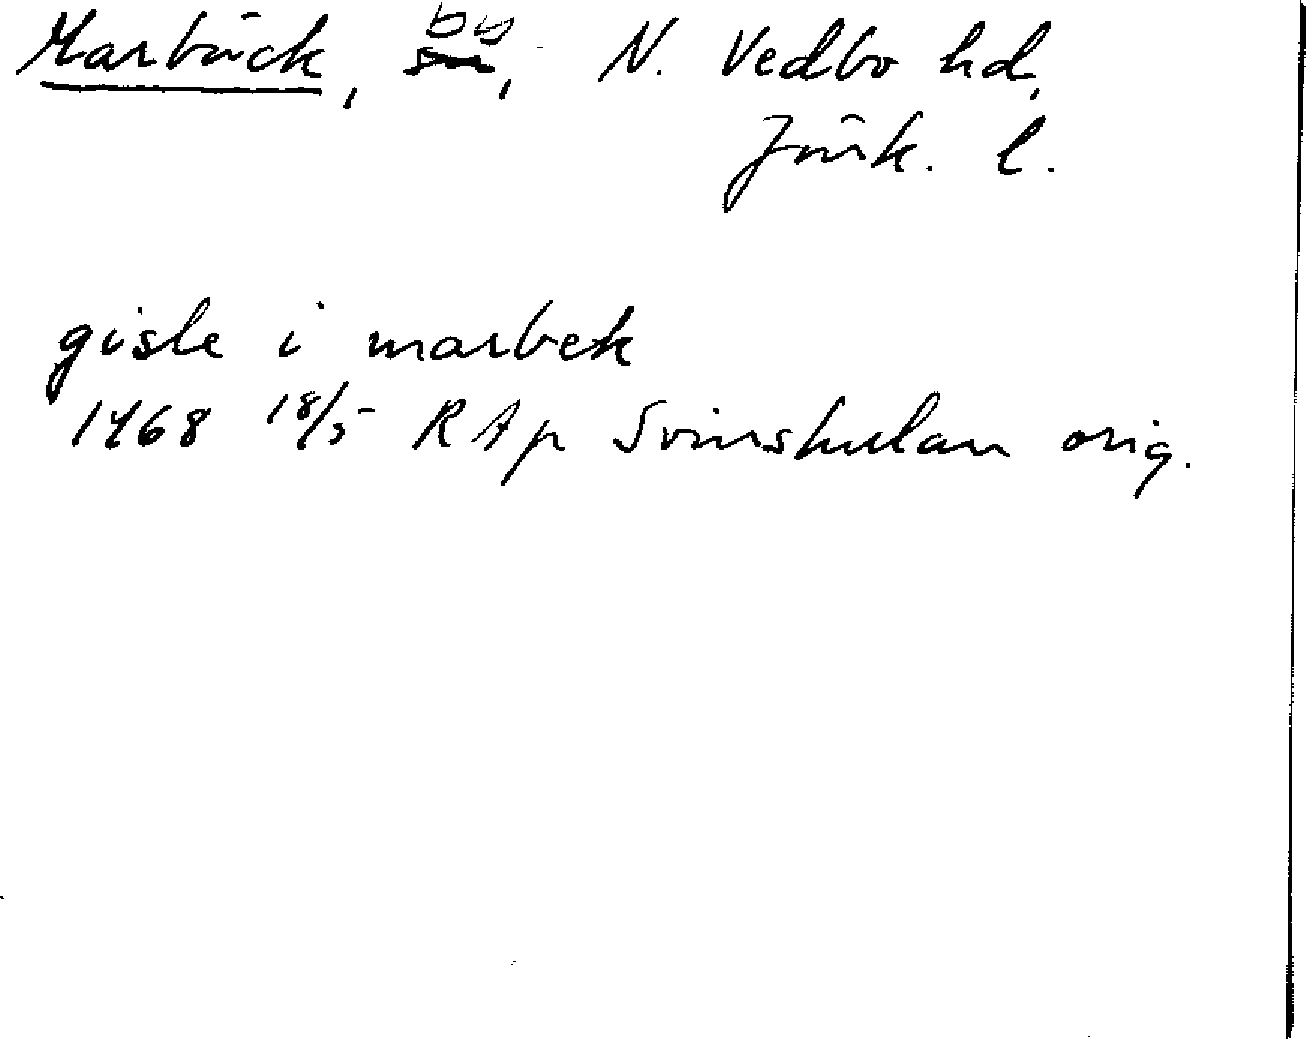 Marbäck, by, N. Vedbo hd,
Jönk. l.
gisle i marbek
1468 18/5 RAp Svinshulan orig.